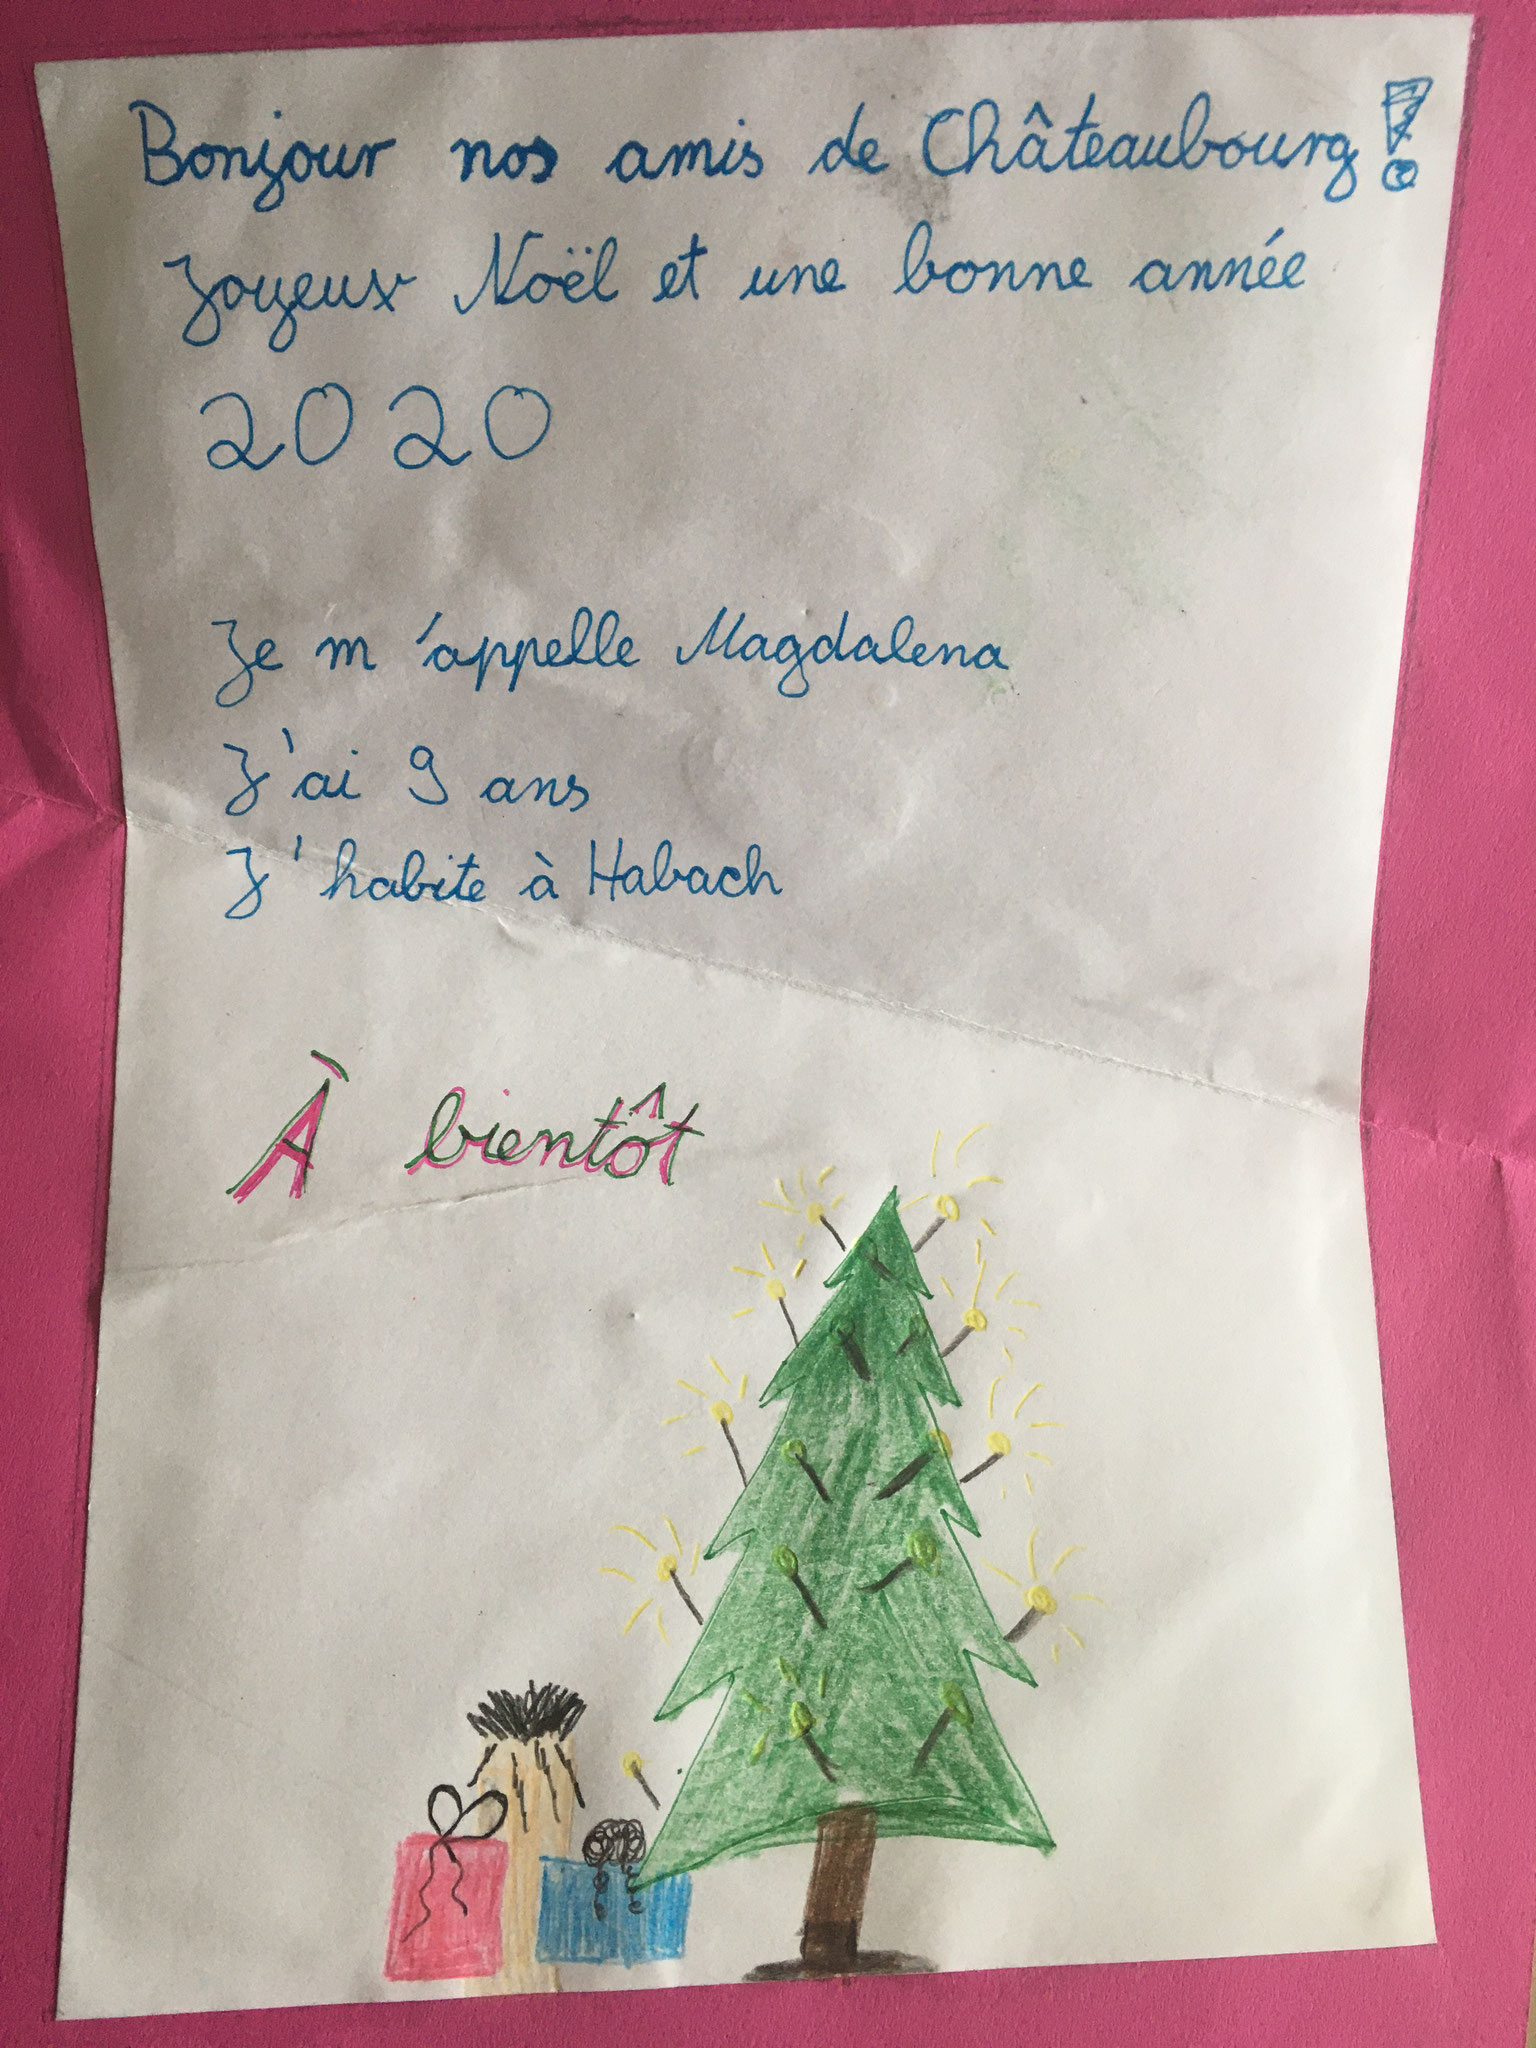 Bonjour nos amis de Châteaubourg!
Joyeux Noël et une bonne année
2020
Je m'appelle Magdalena
J'ai 9 ans
J'habite à Habach
À bientôt